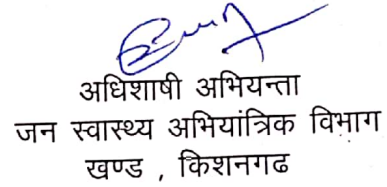 अधिशाषी अभियन्ता
जन स्वास्थ्य अभियांत्रिक विभाग
खण्ड , किशनगढ